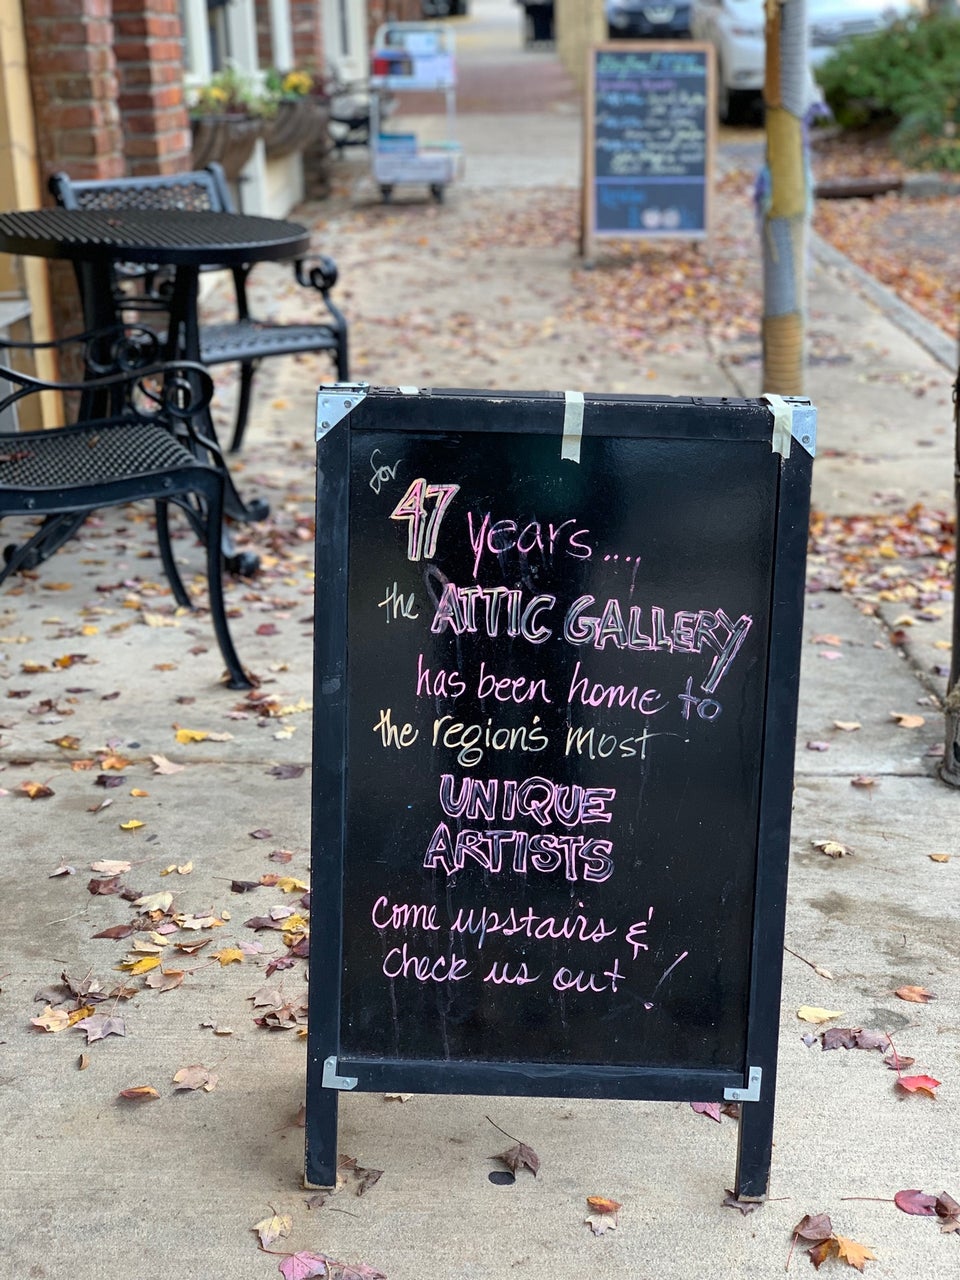 for
47 years....
the ATTIC GALLERY
has been home to
the region's most
UNIQUE
ARTISTS
come upstairs &
check us out!